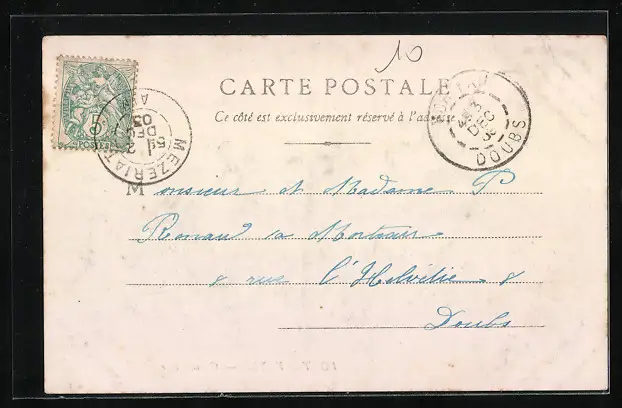 10
CARTE POSTALE
Ce côté est exclusivement réservé à l'adresse
5
POSTES
MEZERIAT
DEC
03
DEC
DOUBS
Monsieur et Madame P
Renaud à Morteau
8 rue l'Helvétie 8
Doubs